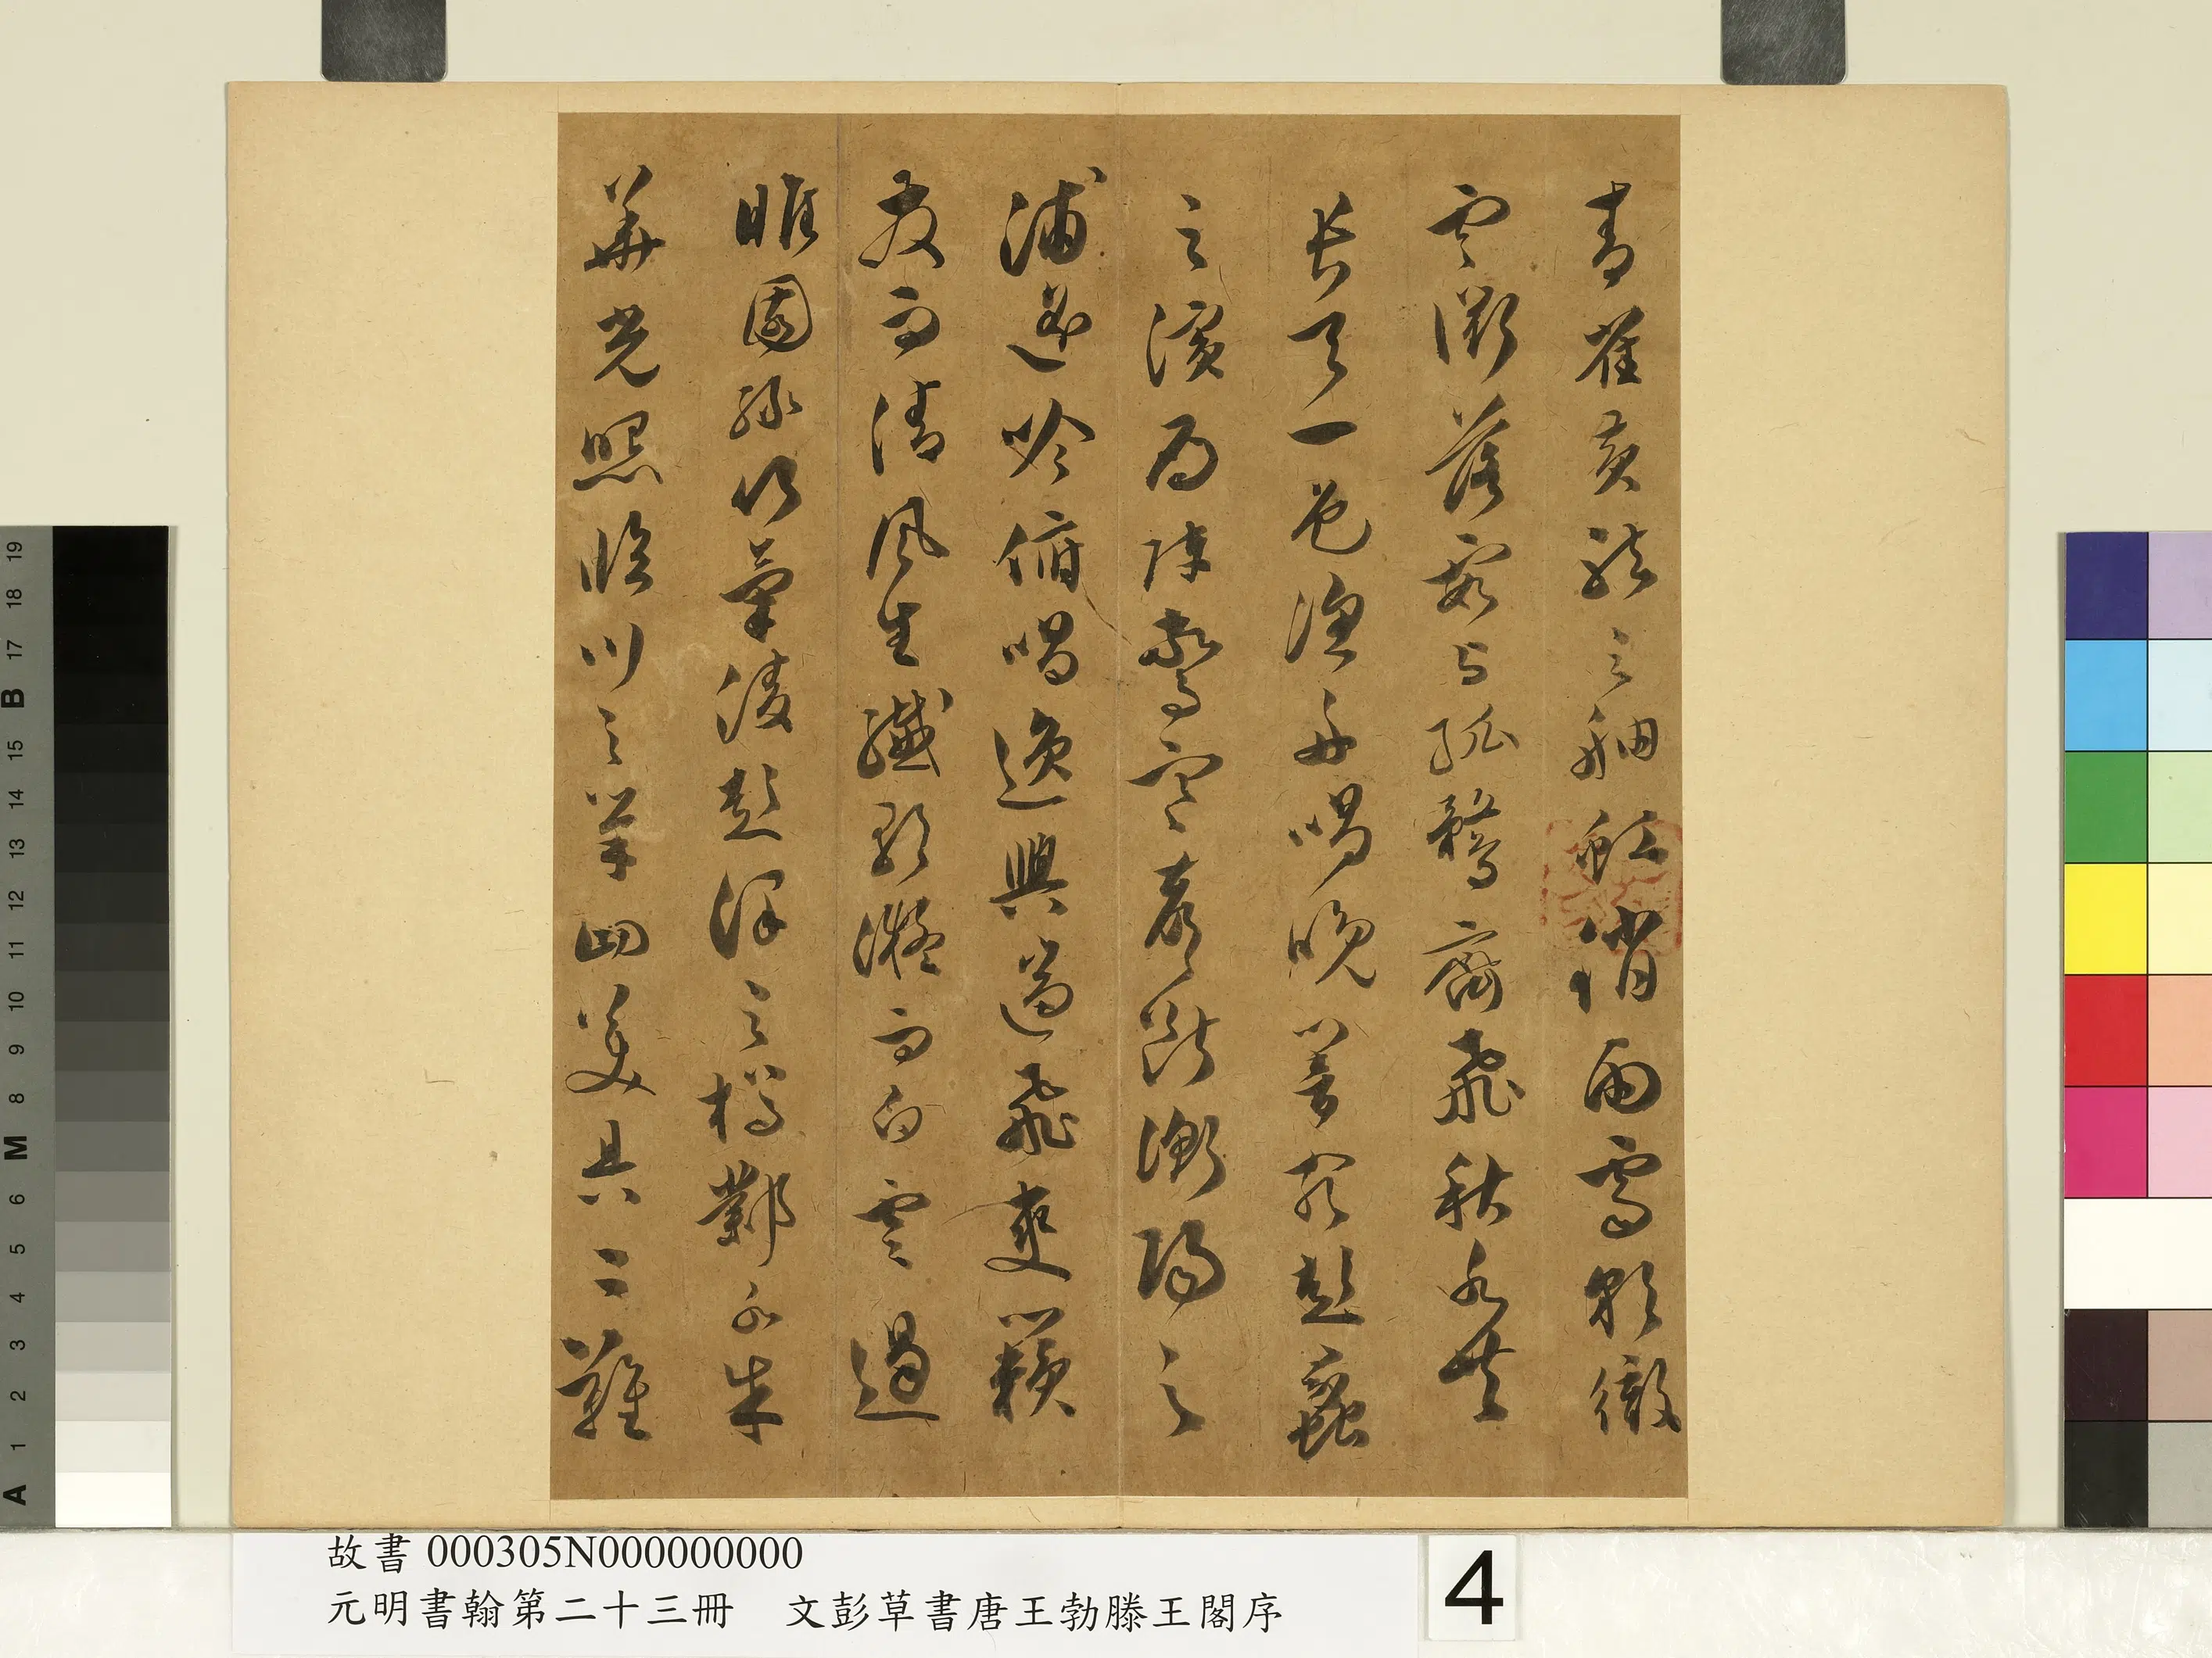 青雀黃龍之舳虹消雨霽彩徹
雲衢落霞與孤鶩齊飛秋水共
長天一色漁舟唱晚響窮彭蠡
之濱雁陣驚寒聲斷衡陽之
浦遙吟俯唱逸興遄飛爽籟
發而清風生纖歌凝而白雲遏
睢園綠竹氣凌彭澤之樽鄴水朱
華光照臨川之筆四美具二難
故書 000305N000000000
元明書翰第二十三冊 文彭草書唐王勃滕王閣序
4
A 1 2 3 4 5 6 M 8 9 10 11 12 13 14 15 B 17 18 19